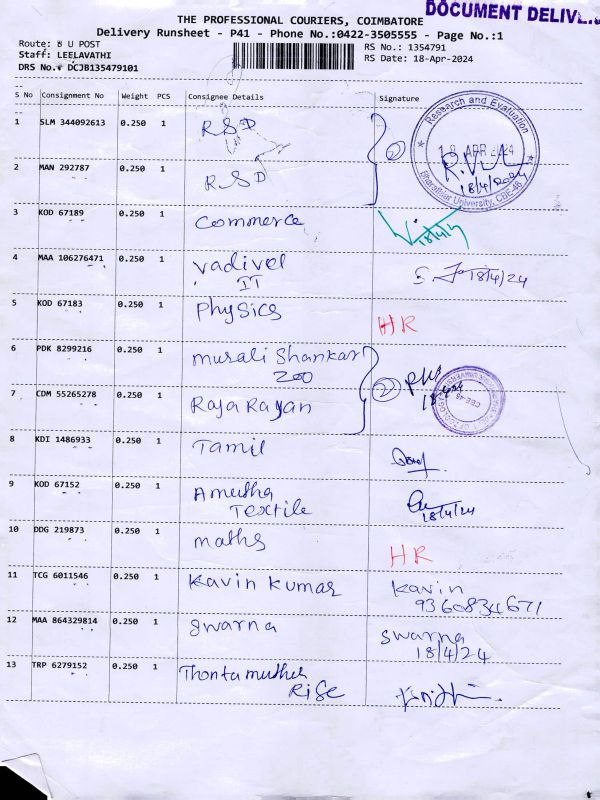 DOCUMENT DELIVE
THE PROFESSIONAL COURIERS, COIMBATORE
Delivery Runsheet - P41 - Phone No.:0422-3505555 - Page No.:1
Route: B U POST
RS No.: 1354791
Staff: LEELAVATHI
RS Date: 18-Apr-2024
DRS No.: DCJB135479101
S No Consignment No Weight PCS Consignee Details Signature
1 SLM 344092613 0.250 1 RSD
Research and Evaluation
18 APR 2024
18/4/2024
Bharathiar University, CBE-46
2 MAN 292787 0.250 1 RSD
3 KOD 67189 0.250 1 Commerce
18/4/24
4 MAA 106276471 0.250 1 Vadivel
IT
18/4/24
5 KOD 67183 0.250 1 Physics
HR
6 PDK 8299216 0.250 1 Murali Shankar
ZOO
2
7 CDM 55265278 0.250 1 Raja Rajan
CBE-46
8 KDI 1486933 0.250 1 Tamil
9 KOD 67152 0.250 1 Amutha
Textile
18/4/24
10 DDG 219873 0.250 1 maths
HR
11 TCG 6011546 0.250 1 Kavin Kumar Kavin
9360834671
12 MAA 864329814 0.250 1 Swarna Swarna
18/4/24
13 TRP 6279152 0.250 1 Thontamuthur
RISE